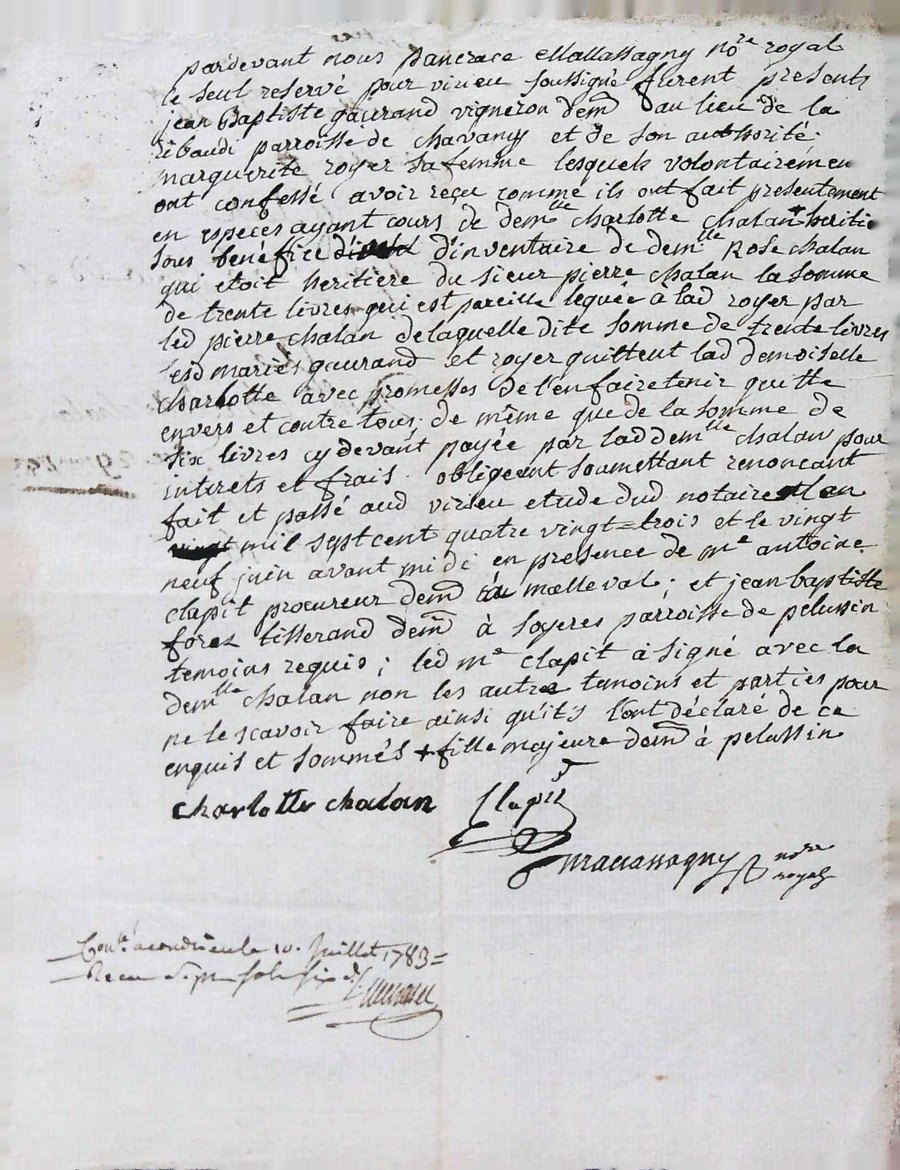 pardevant nous pancrace Mallassagny no.re royal
le seul reservé pour virieu soussigné furent presents
jean Baptiste gaurand vigneron dem.t au lieu de la
ribaudi parroisse de chavanay et de son authorité
marguerite royer sa femme lesquels volontairemen
ont confessé avoir reçu comme ils ont fait presentement
en especes ayant cours de dem.lle charlotte chalan + heritie
sous benéfice d'inventaire de dem.lle Rose chalan
qui etoit heritiere du sieur pierre chalan la somme
de trente livres qui est pareille leguée à lad royer par
led pierre chalan de laquelle dite somme de trente livres
lesd mariés gaurand et royer quittent lad demoiselle
charlotte avec promesses de l'en faire tenir quitte
envers et contre tous; de même que de la somme de
six livres cy devant payée par lad dem.lle chalan pour
interets et frais. obligeant soumettant renonçant
fait et passé aud virieu etude dud notaire l'an
mil sept cent quatre vingt=trois et le vingt
neuf juin avant midi en presence de m.e antoine
clapit procureur dem.t à malleval; et jean baptiste
forez tisserand dem.t à soyeres parroisse de pelussin
temoins requis; led m.e clapit à signé avec la
dem.lle chalan non les autre temoins et parties pour
ne le scavoir faire ainsi qu'ils l'ont déclaré de ce
enquis et sommés + fille majeure dem.t à pelussin
charlotte chalan
Clapit
mallassagny no.re
royal
Con.lé a condrieu le 10. Juillet 1783=
Recu sols six d